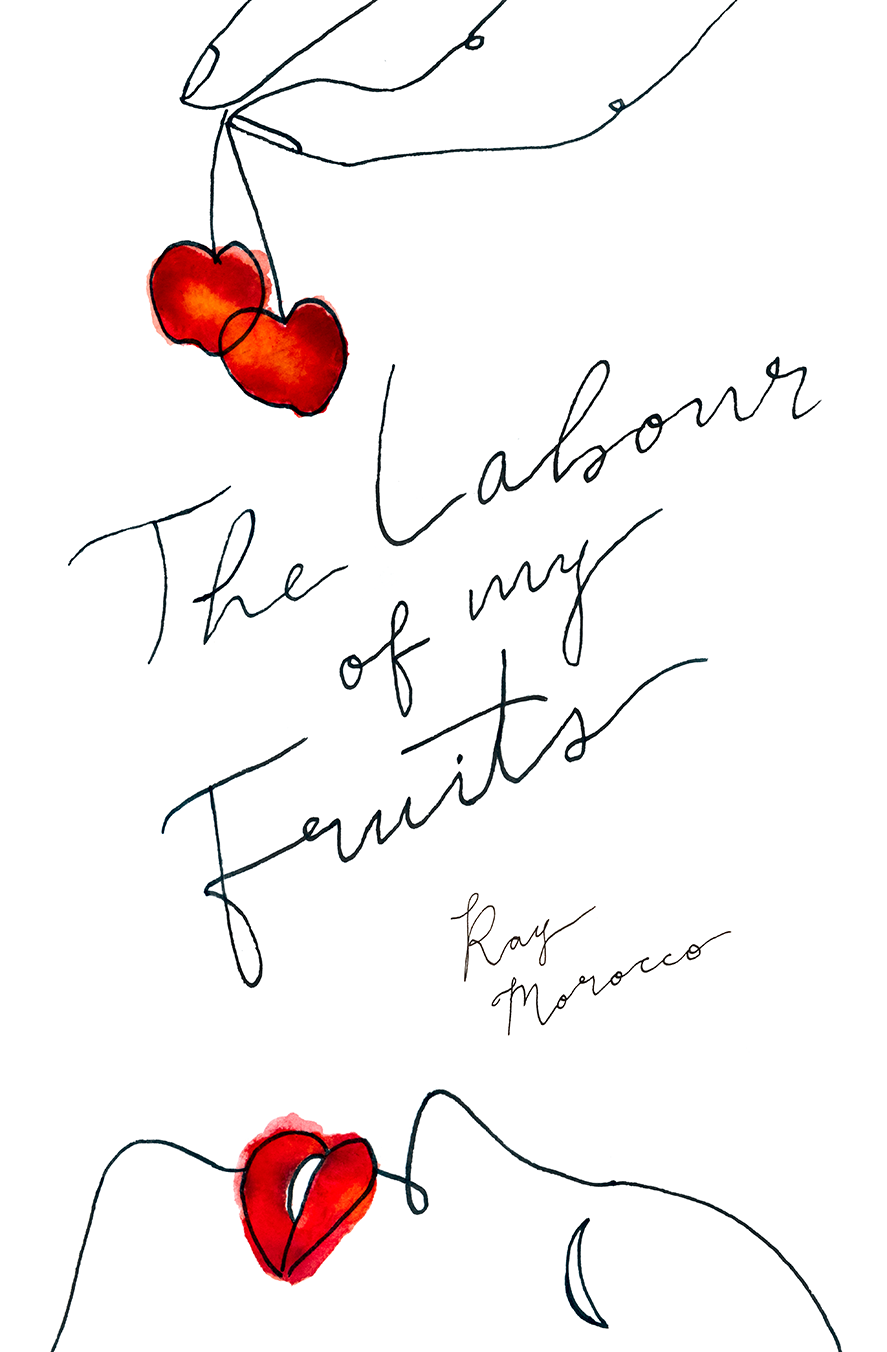 The Labour
of my
Fruits
Ray
Morocco